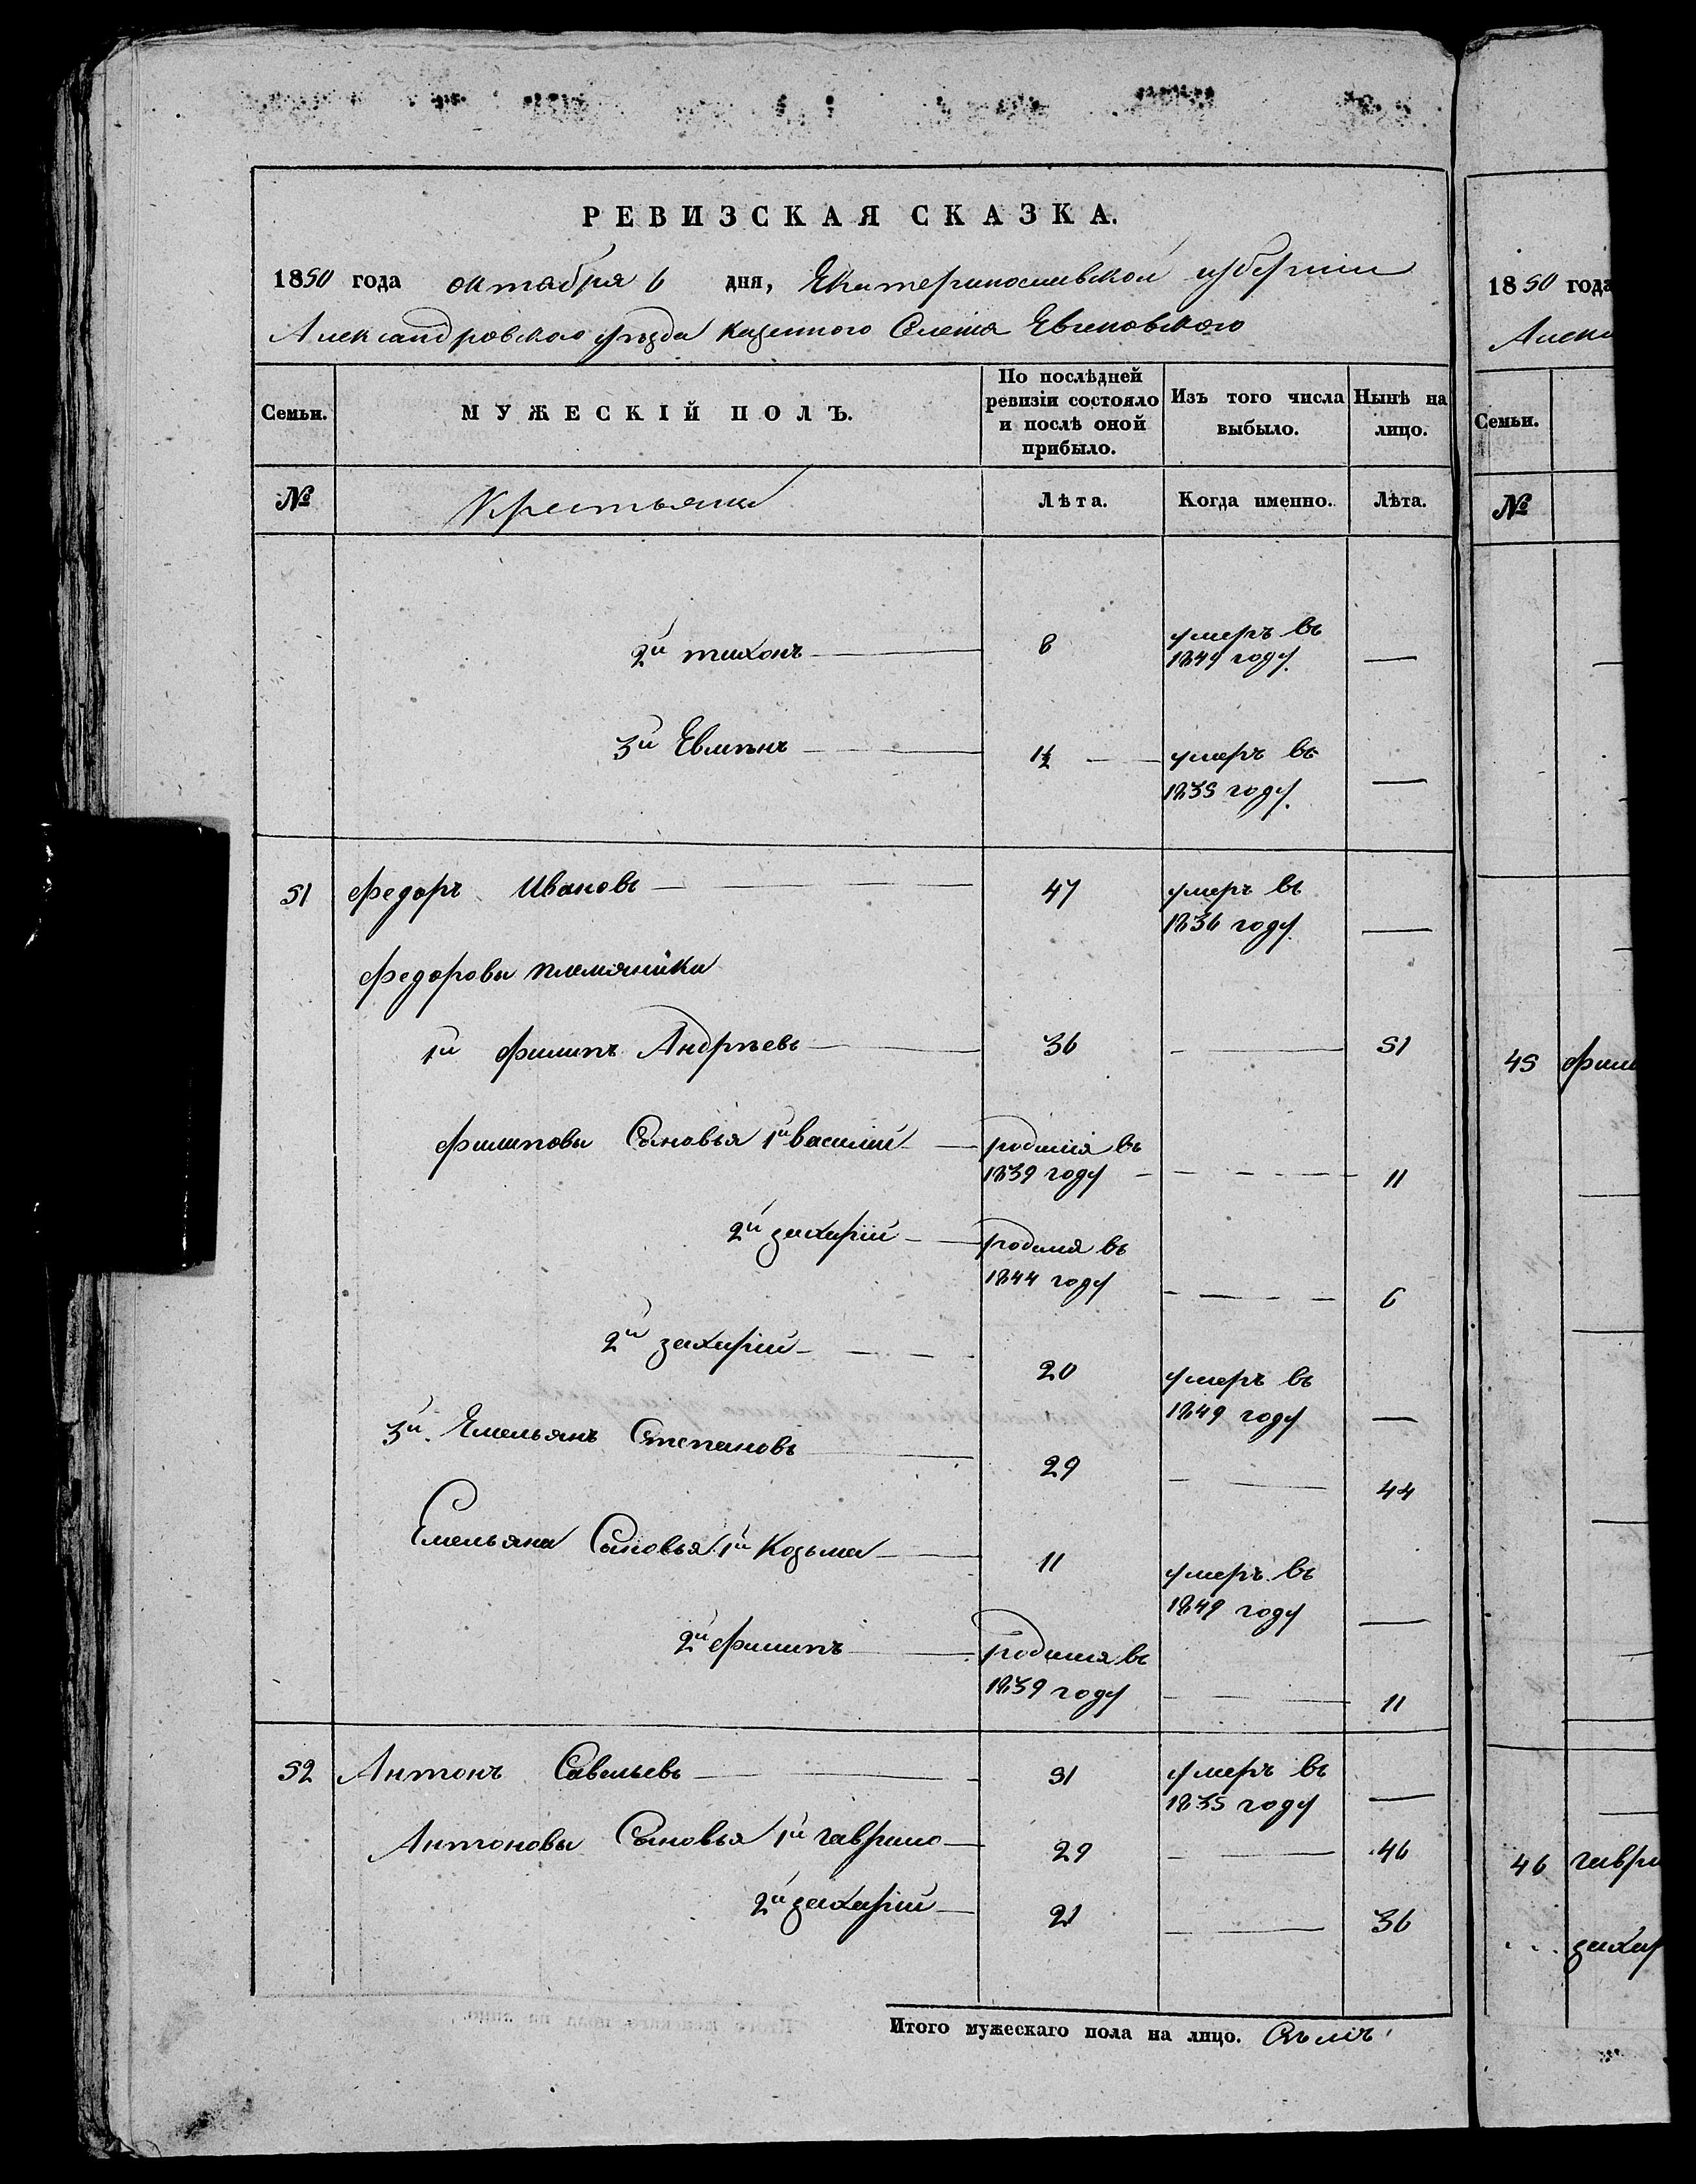 РЕВИЗСКАЯ СКАЗКА.
1850 года октября 6 дня, Екатеринославской губернии
Александровского уезда казенного Селения
Семьи. МУЖЕСКІЙ ПОЛЪ. По послѣдней ревизіи состояло и послѣ оной прибыло. Изъ того числа выбыло. Нынѣ на лицо.
№ Крестьяне Лѣта. Когда именно. Лѣта.
2й тихонъ 8 умеръ въ 1849 году. —
3й 1½ умеръ въ 1835 году. —
51 Федоръ Ивановъ 47 умеръ въ 1836 году. —
Федоровы племяники
1й Филипъ Андрѣевъ 36 — 51
Филиповы Сыновья 1й василий родился въ 1839 году — 11
2й захарій родился въ 1844 году — 6
2й захарій 20 умеръ въ 1849 году —
3й Емельянъ Степановъ 29 — 44
Емельяна Сыновья 1й Козьма 11 умеръ въ 1849 году —
2й Филипъ родился въ 1839 году — 11
52 Антонъ Савельевъ 51 умеръ въ 1835 году —
Антоновы Сыновья 1й гаврило 29 — 46
2й захарій 21 — 36
Итого мужескаго пола на лицо. Семъ
1850 года
Семьи.
№
45
46